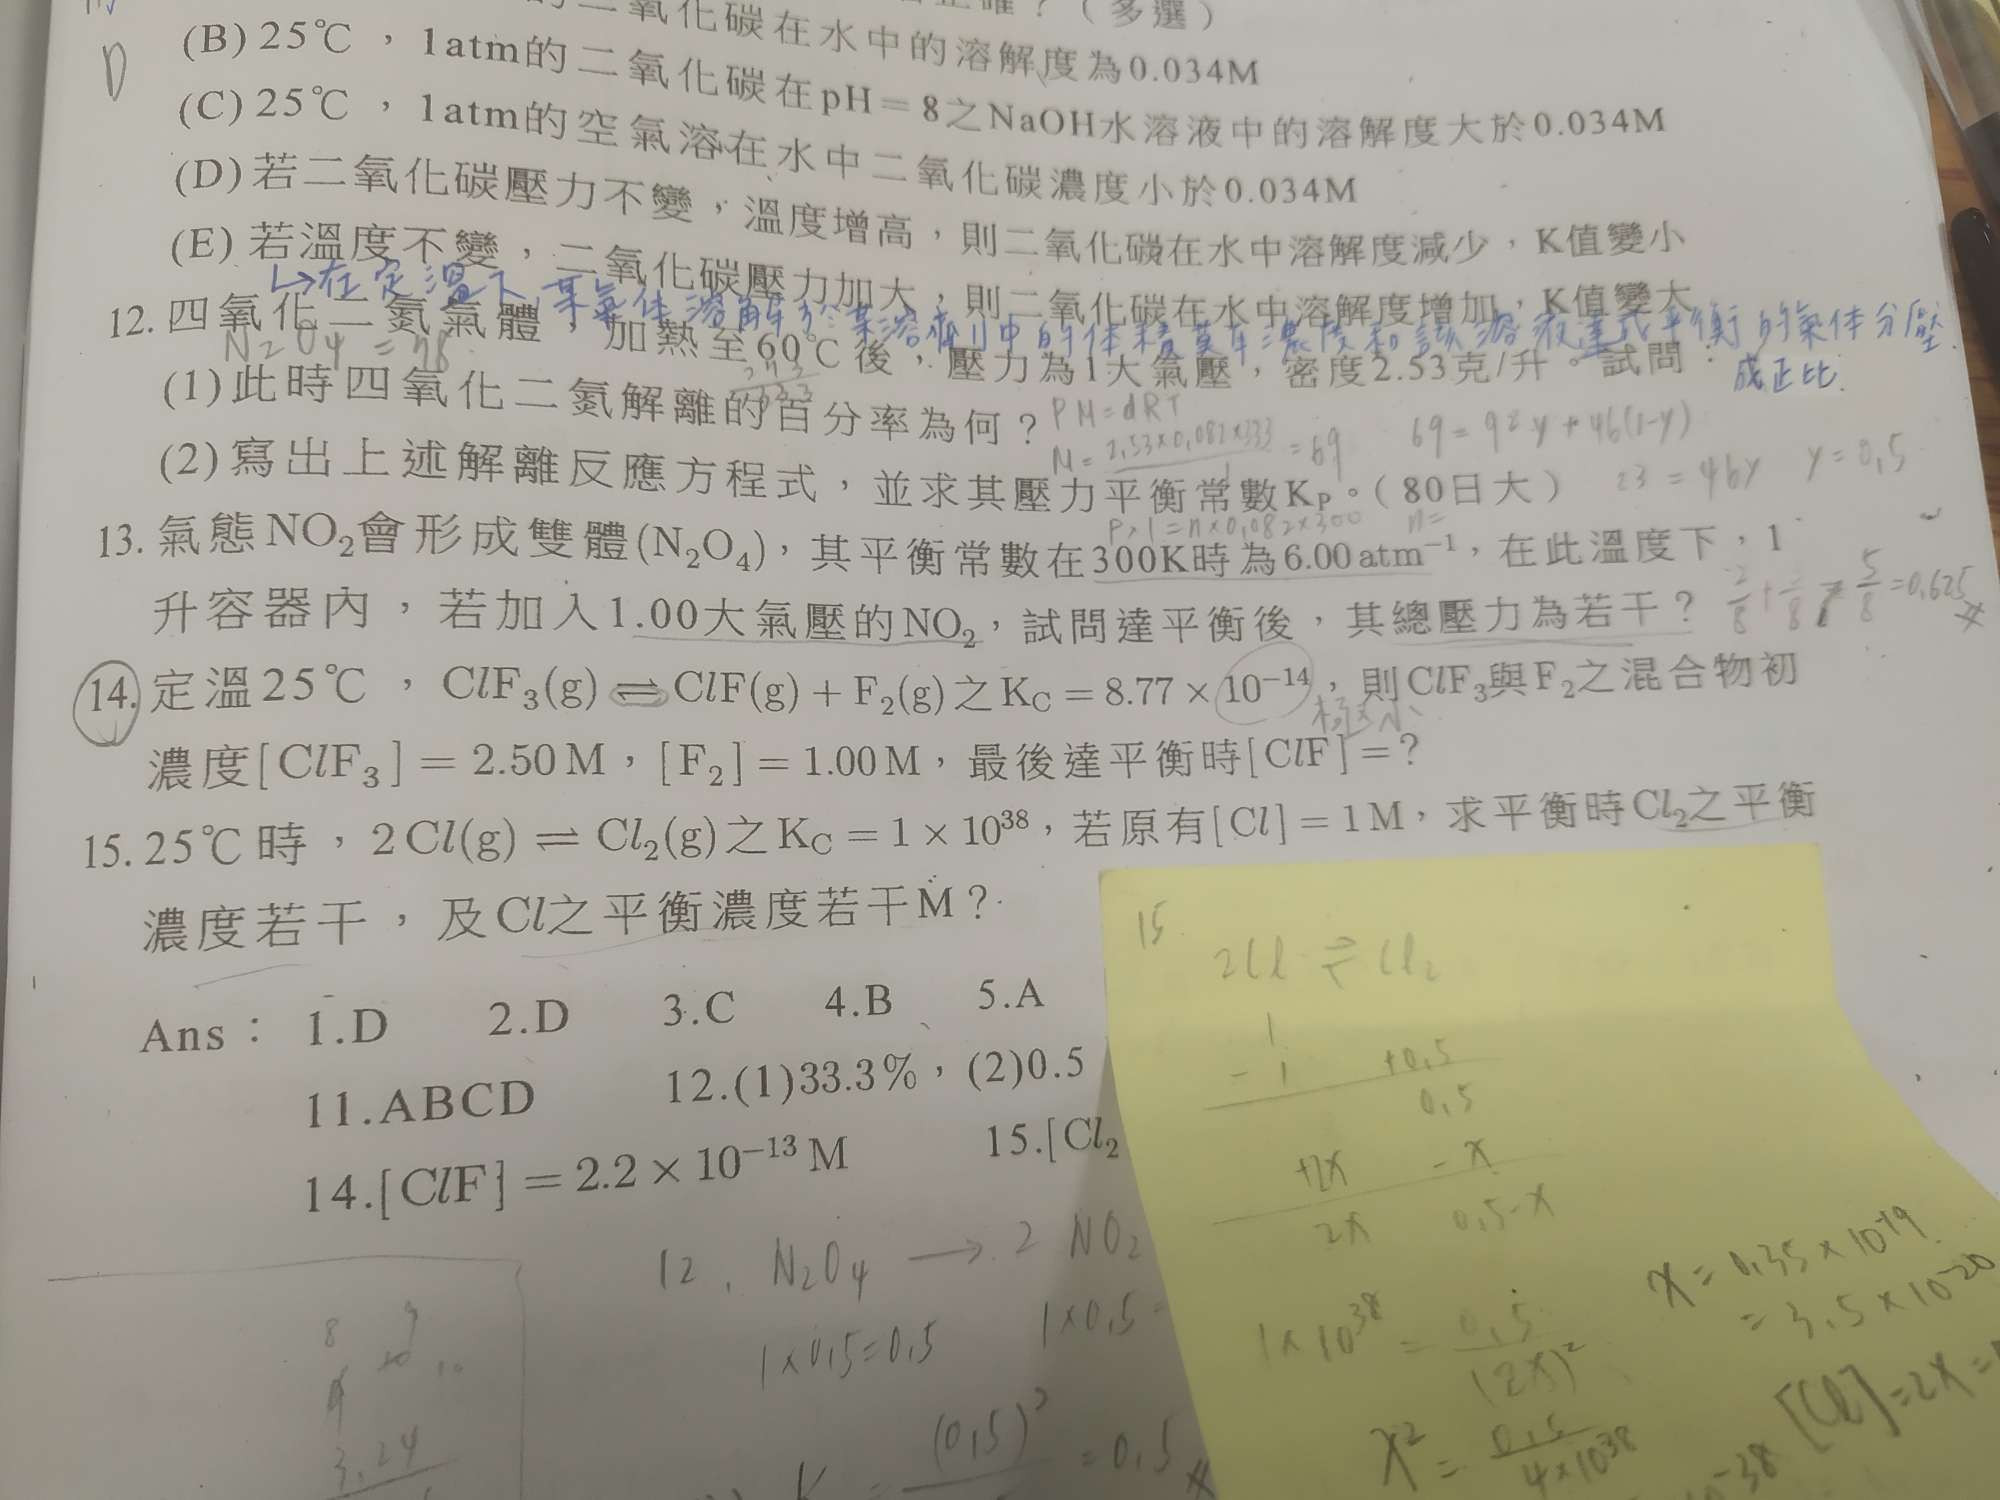 二氧化碳在水中的溶解度為0.034M
(多選)
D
(B) 25℃，1atm的二氧化碳在pH＝8之NaOH水溶液中的溶解度大於0.034M
(C) 25℃，1atm的空氣溶在水中二氧化碳濃度小於0.034M
(D) 若二氧化碳壓力不變，溫度增高，則二氧化碳在水中溶解度減少，K值變小
(E) 若溫度不變，二氧化碳壓力加大，則二氧化碳在水中溶解度增加，K值變大
↳在定溫下,某氣体溶解於某溶劑中的体積莫耳濃度和該溶液達成平衡的氣体分壓
成正比.
12. 四氧化二氮氣體，加熱至60℃後，壓力為1大氣壓，密度2.53克/升。試問：
N2O4
273
333
(1) 此時四氧化二氮解離的百分率為何？
PM=dRT
M= 2.53×0.082×333 / 1 =69
69=92y+46(1-y)
23=46y y=0.5
(2) 寫出上述解離反應方程式，並求其壓力平衡常數KP。(80日大)
P×1=n×0.082×300 n=
13. 氣態NO2會形成雙體(N2O4)，其平衡常數在300K時為6.00atm−1，在此溫度下，1
升容器內，若加入1.00大氣壓的NO2，試問達平衡後，其總壓力為若干？
5/8=0.625
14. 定溫25℃，ClF3(g)⇌ClF(g)＋F2(g)之KC＝8.77×10−14，則ClF3與F2之混合物初
極小
濃度[ClF3]＝2.50M，[F2]＝1.00M，最後達平衡時[ClF]＝？
15. 25℃時，2Cl(g)⇌Cl2(g)之KC＝1×10³⁸，若原有[Cl]＝1M，求平衡時Cl2之平衡
濃度若干，及Cl之平衡濃度若干M？
Ans： 1.D 2.D 3.C 4.B 5.A
11.ABCD 12.(1)33.3%，(2)0.5
14.[ClF]＝2.2×10−13M 15.[Cl2
12. N2O4 → 2 NO2
1×0.5=0.5 1×0.5=
(0.5)² =0.5
K =
8 9
10 10
3.24
15
2Cl ⇌ Cl2
1
-1 +0.5
0.5
+2x -x
2x 0.5-x
1×10³⁸ = 0.5 / (2x)²
x² = 0.5 / 4×10³⁸
x = 0.35×10⁻¹⁹
= 3.5×10⁻²⁰
[Cl]=2x=